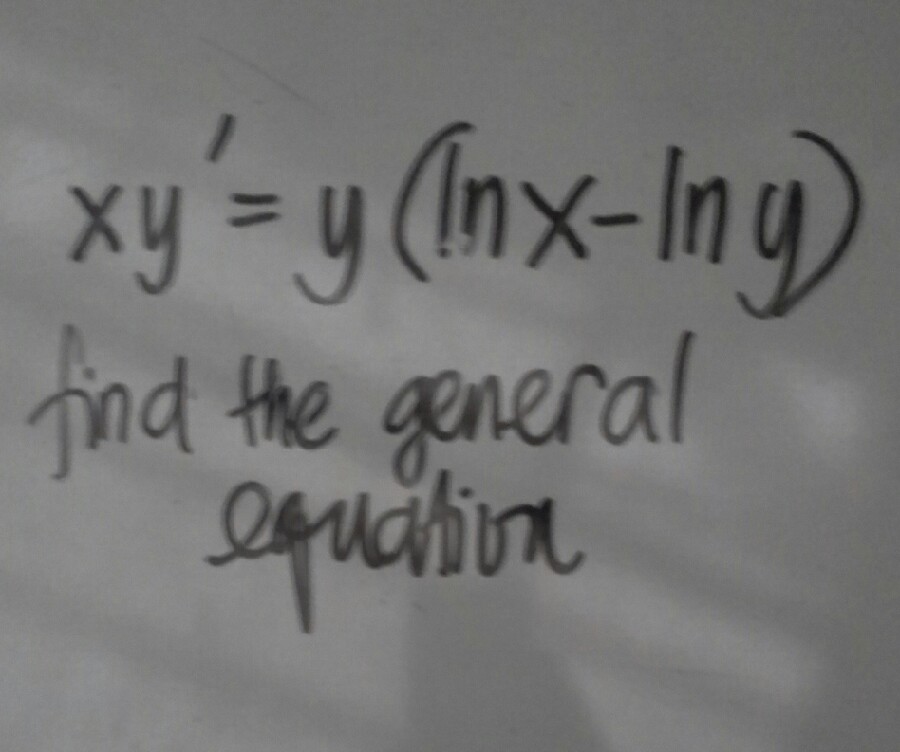 xy' = y (ln x - ln y)
find the general
equation